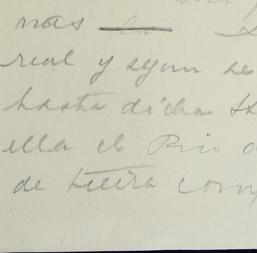 mas
real y segun se
hasta dichas
ella el Rio
de tierra com